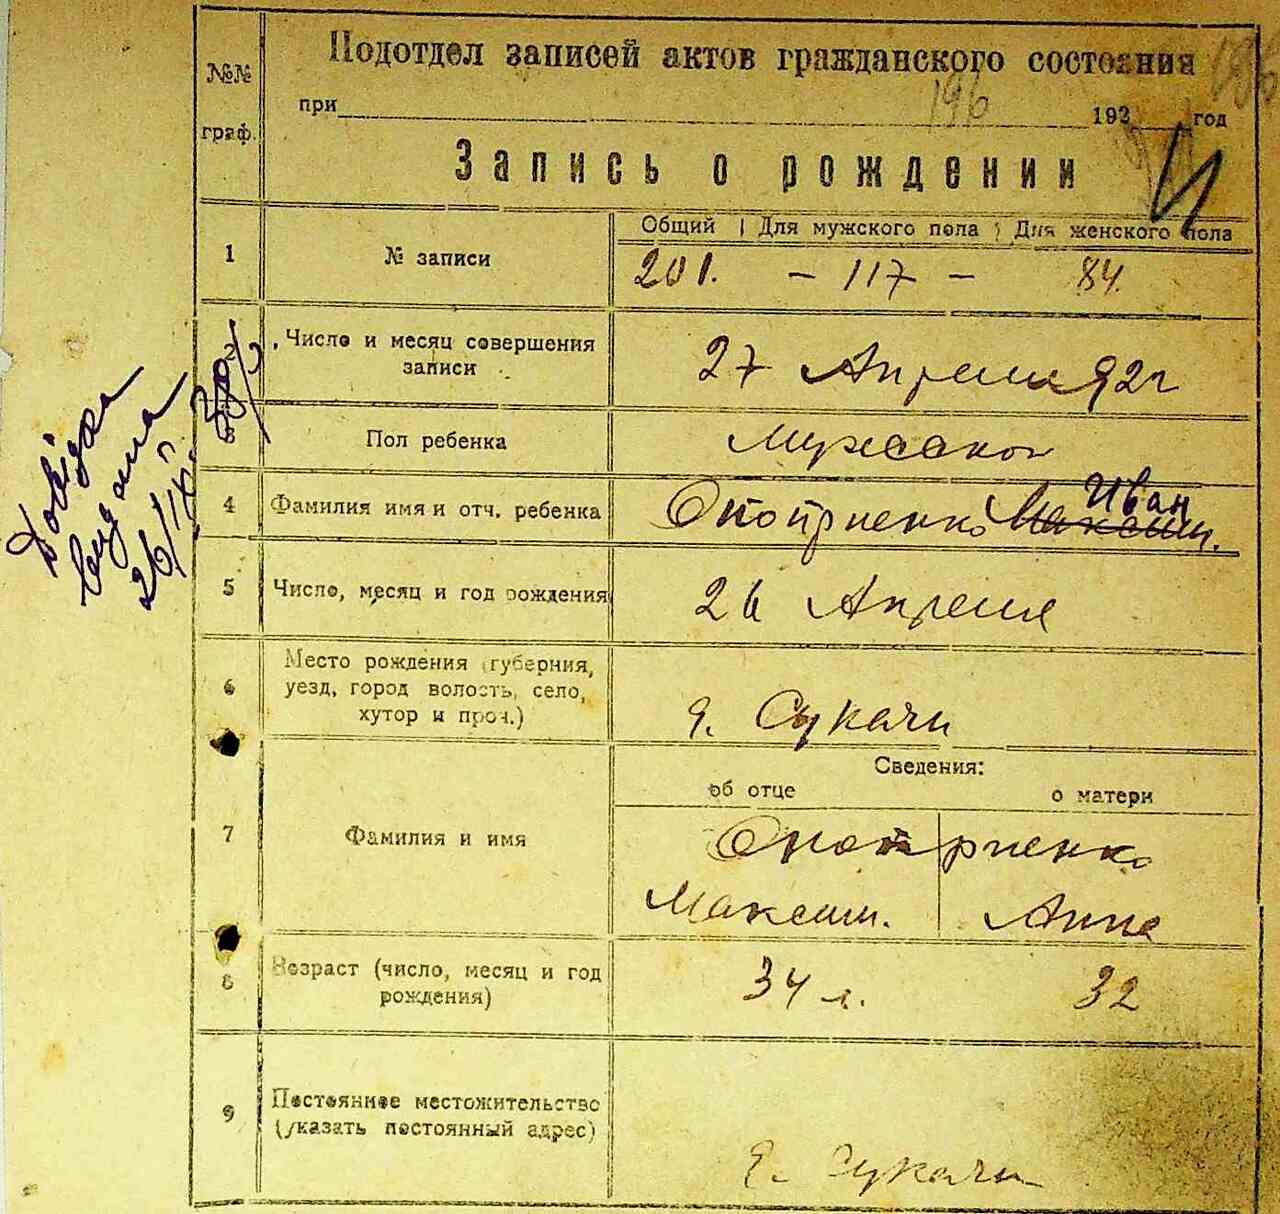 Подотдел записей актов гражданского состояния
№№
граф.
при 192 год
196
Запись о рождении
Общий Для мужского пола Для женского пола
1 № записи 201. - 117 - 84.
2 Число и месяц совершения записи 27 Апреля 92 г
3 Пол ребенка Мужской
Иван
4 Фамилия имя и отч. ребенка Оноприенко Максим.
5 Число, месяц и год рождения 26 Апреля
6 Место рождения (губерния,
уезд, город волость, село,
хутор и проч.) Сукачи
Сведения:
об отце о матери
7 Фамилия и имя Оноприенко
Максим. Анна
8 Возраст (число, месяц и год
рождения) 34 л. 32
9 Постоянное местожительство
(указать постоянный адрес)
Сукачи
Довідка
видана